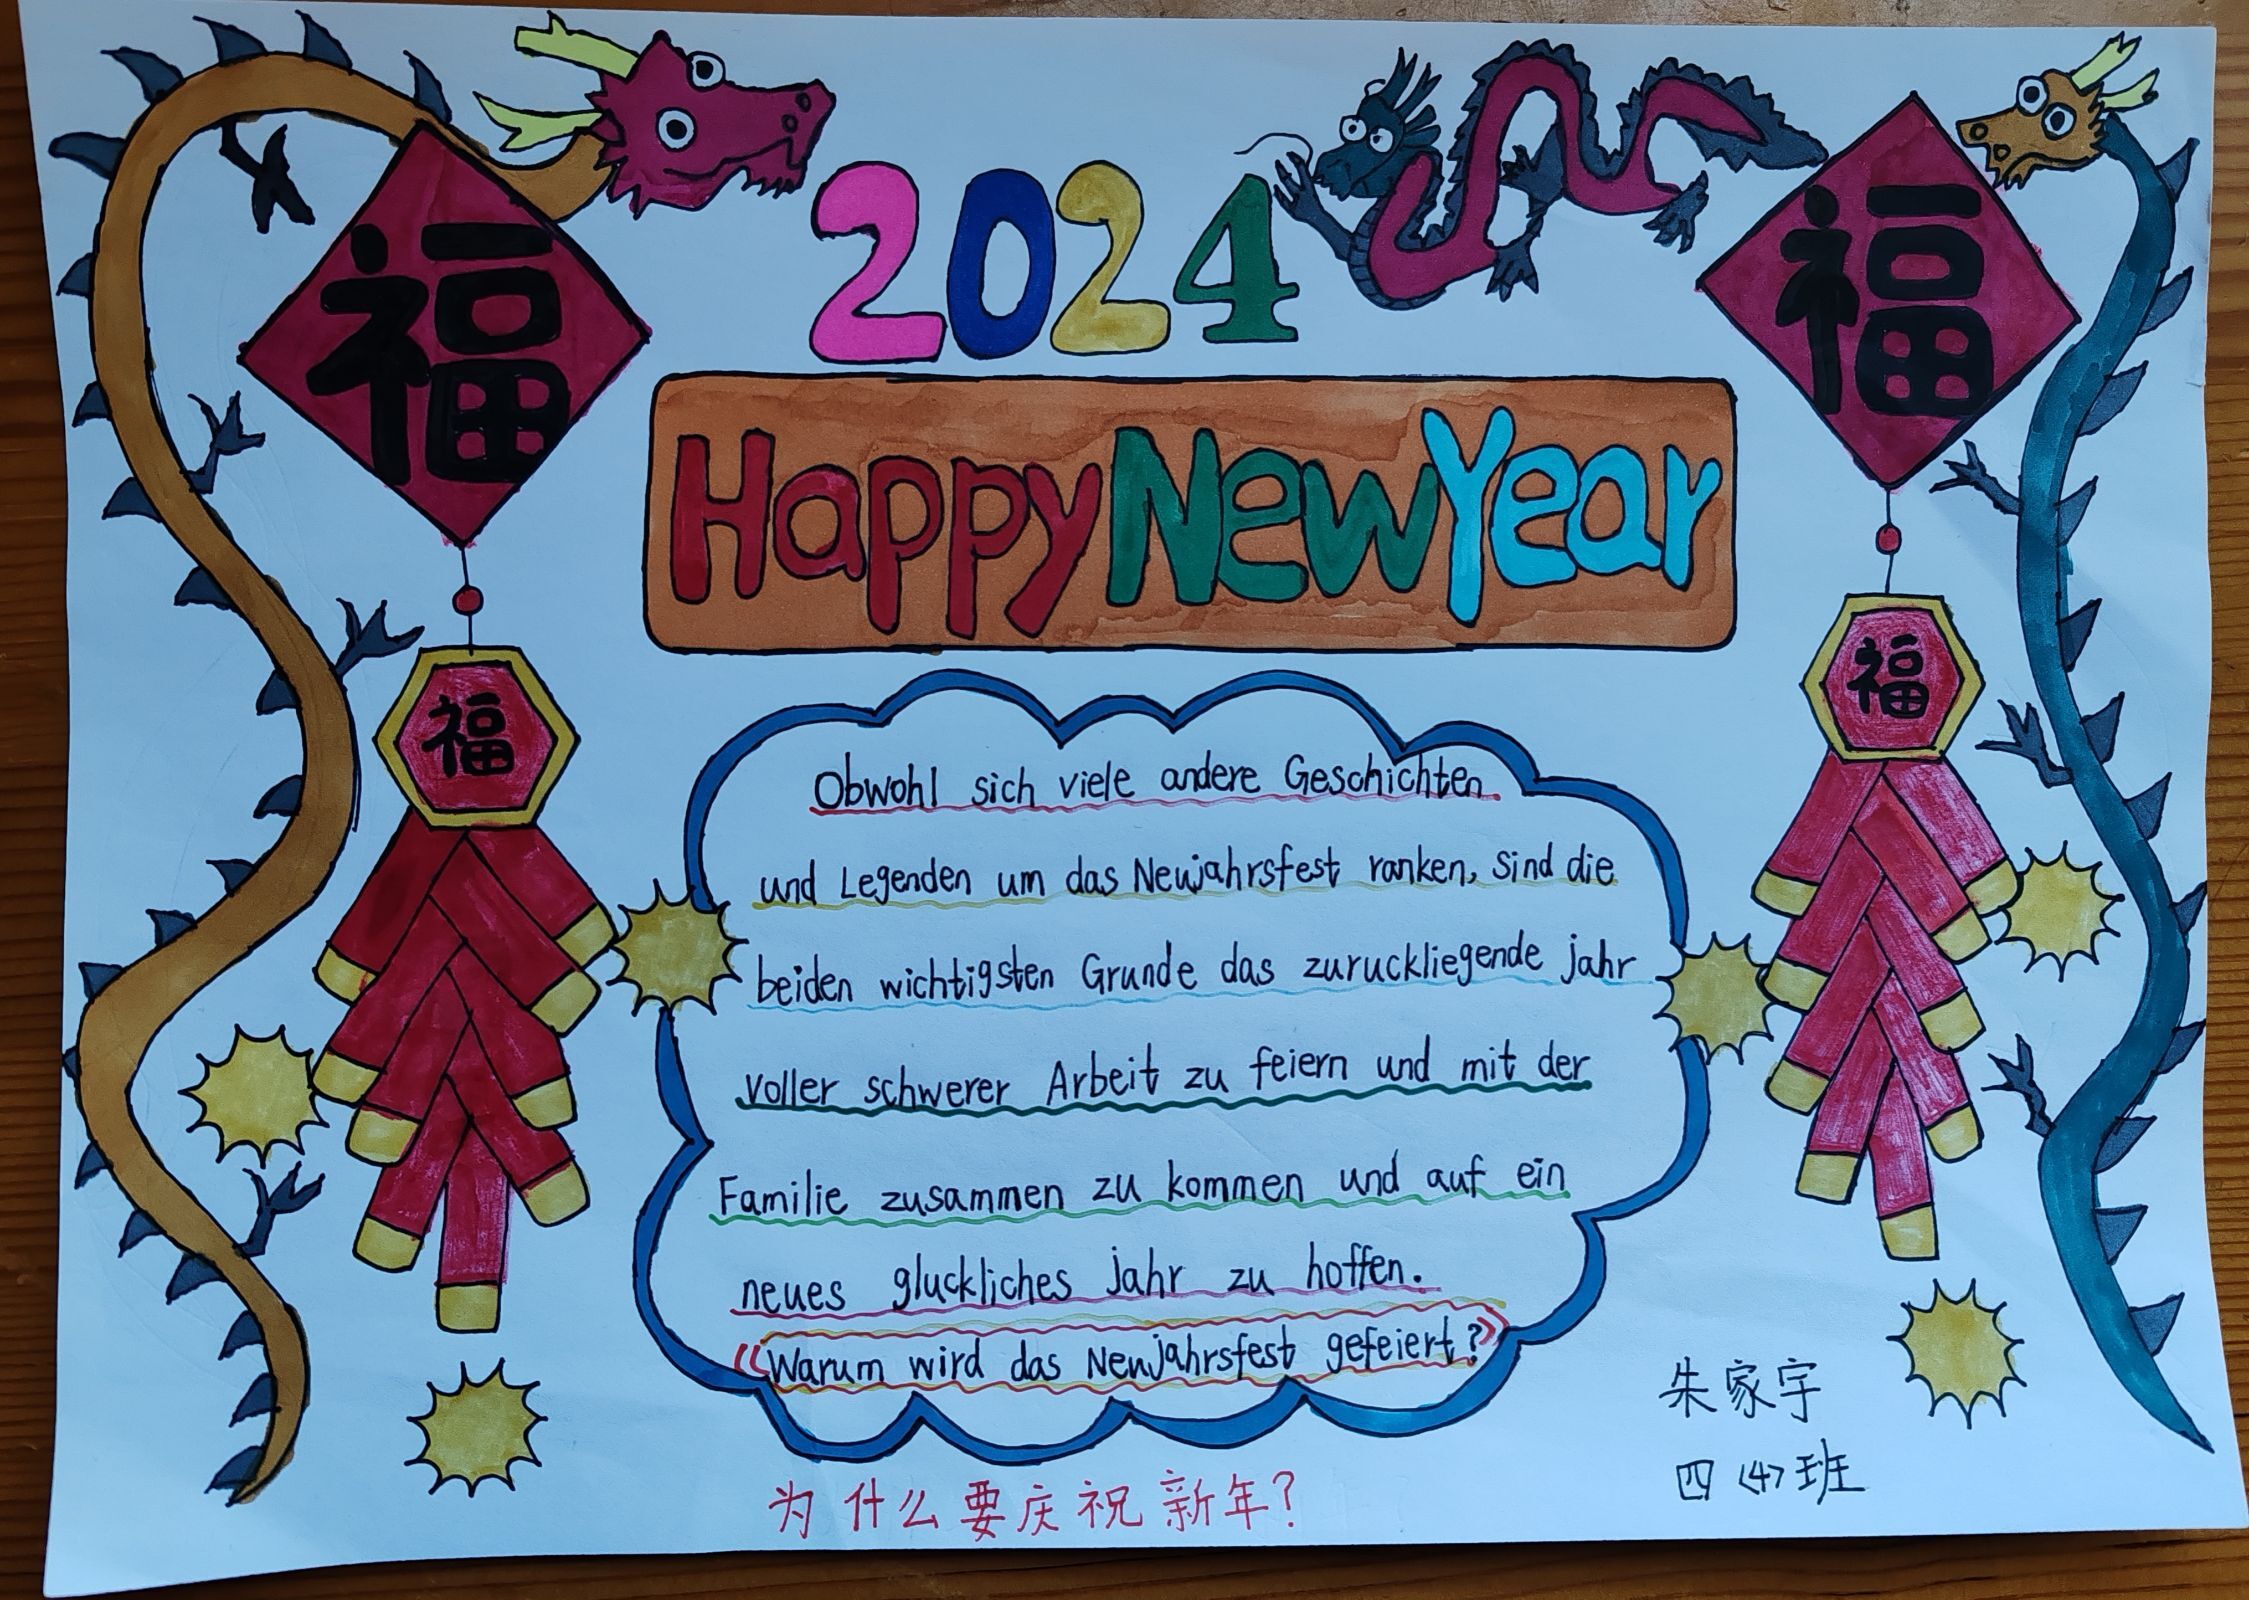 2024
福
福
Happy New Year
福
福
Obwohl sich viele andere Geschichten
und Legenden um das Neujahrsfest ranken, sind die
beiden wichtigsten Grunde das zuruckliegende jahr
voller schwerer Arbeit zu feiern und mit der
Familie zusammen zu kommen und auf ein
neues gluckliches jahr zu hoffen.
《Warum wird das Neujahrsfest gefeiert?》
为什么要庆祝新年?
朱家宇
四(4)班